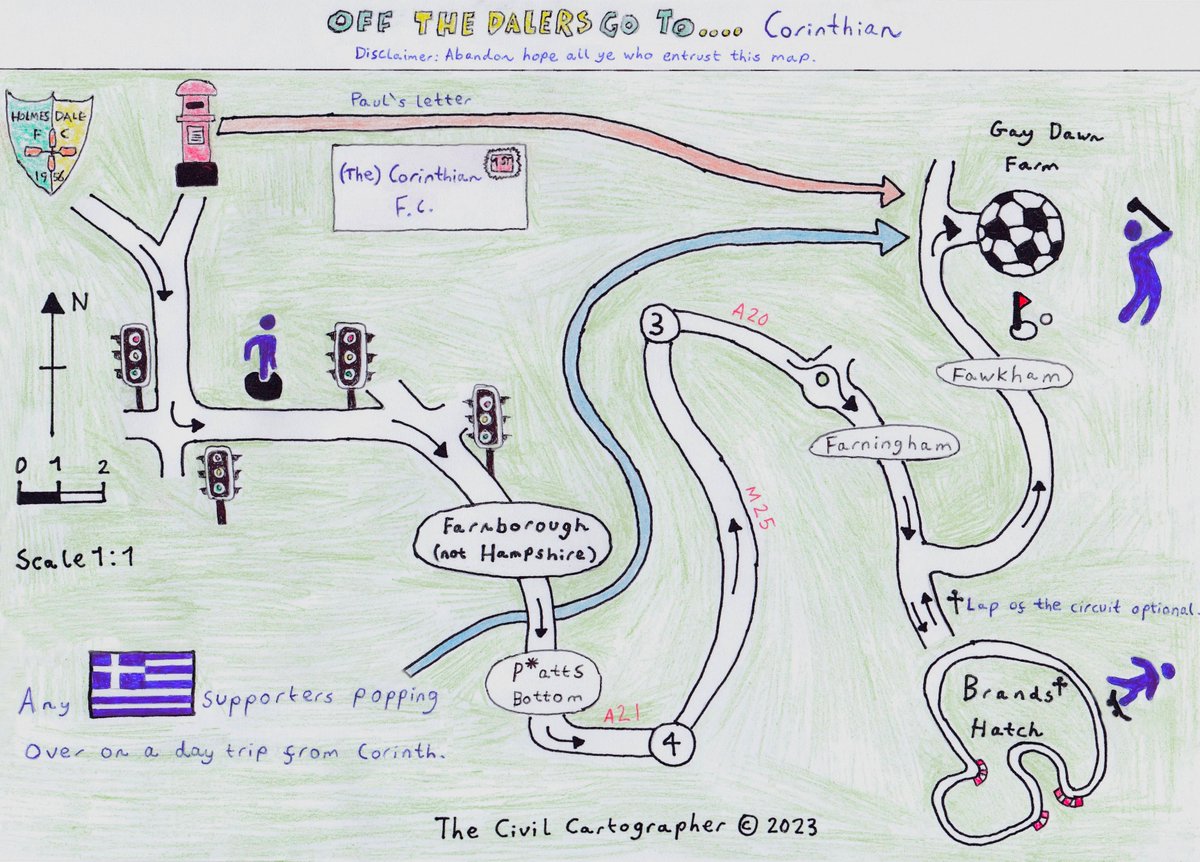 OFF THE DALERS GO TO.... Corinthian
Disclaimer: Abandon hope all ye who entrust this map.
HOLMES DALE
F C
19 56
Paul's letter
(The) Corinthian
F.C.
1ST
Gay Dawn
Farm
N
3
A20
Fawkham
Farningham
0 1 2
Scale 1:1
M25
Farnborough
(not Hampshire)
†Lap of the circuit optional.
P*atts
Bottom
A21
4
Brands†
Hatch
Any supporters popping
Over on a day trip from Corinth.
The Civil Cartographer © 2023